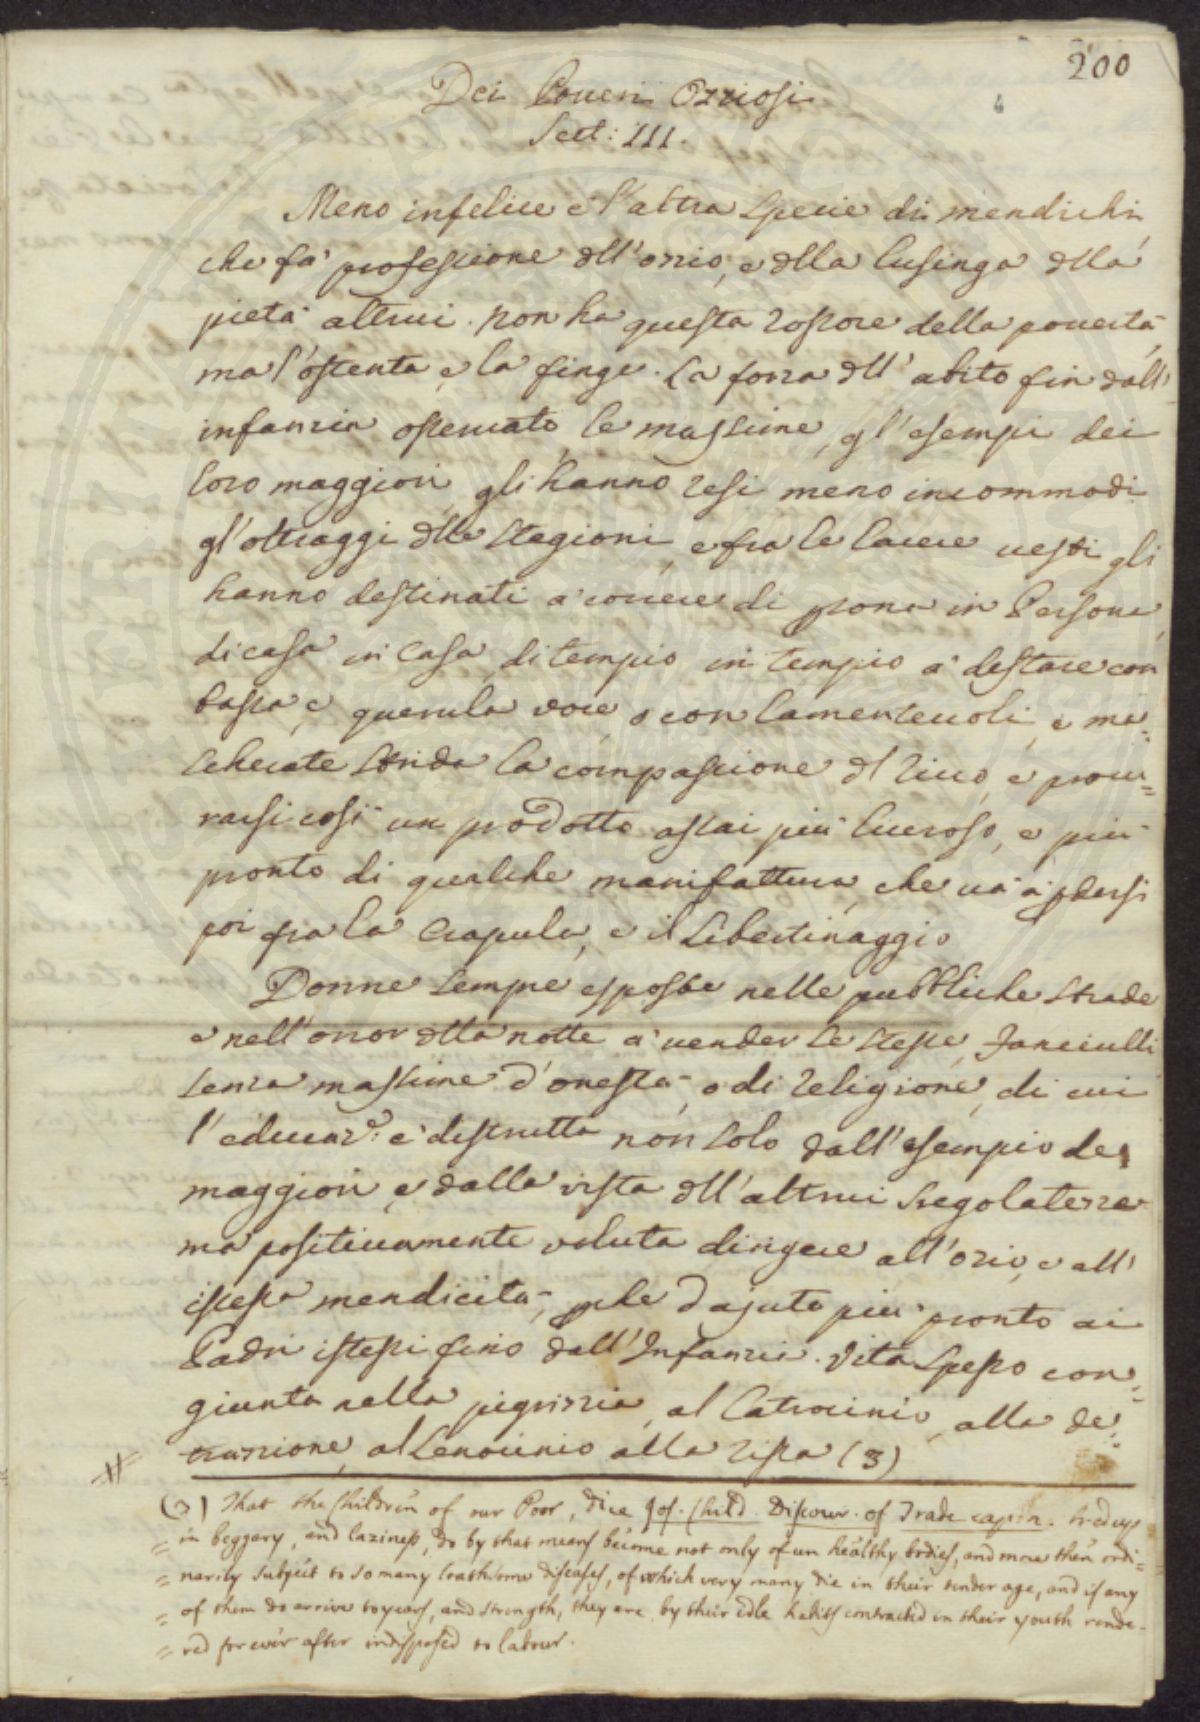 200
Dei Poveri Oziosi
Sect: III.
Meno infelice è l'altra specie di mendichi,
che fà professione dll'ozio, e dlla lusinga dlla
pietà altrui. Non ha questa rossore della povertà,
ma l'ostenta, e la finge. La forza dll'abito fin dall'
infanzia osservato, le massime, gl'esempi dei
loro maggiori, gli hanno resi meno incommodi
gl'oltraggi dlle stagioni, e fra le lacere vesti gli
hanno destinati a' correre di psona in Persona,
di casa in casa, di tempio in tempio a' destare con
bassa, e querula voce, o con lamentevoli, e ma=
scherate strida la compassione dl ricco, e procu=
rarsi così un prodotto assai più lucroso, e più
pronto di qualche manifattura, che và à pdersi
poi fra la Crapula, e il Libertinaggio
Donne sempre esposte nelle pubbliche strade
e nell'orror dlla notte a' vender se stesse, Fanciulli
senza massime d'onestà, o di Religione, di cui
l'educaz.e è distrutta non solo dall'esempio de
maggiori, e dalla vista dll'altrui sregolatezze
ma positivamente voluta dirigere all'ozio, e all'
istessa mendicità, pche d'ajuto più pronto ai
Padri istessi fino dall'Infanzia. Vita spesso con=
giunta nella pigrizzia, al Latrocinio, alla de=
trazzione, al Lenocinio alla rissa (3)
(3) That the Children of our Poor, dice Jos. Child. Discour. of Trade cap. bred up
= in beggary, and laziness, do by that means become not only of un healthy bodies, and more then ordi=
= narily subject to so many loathsome diseases, of which very many die in their tender age, and if any
= of them do arrive to years, and strength, they are by their idle habits contracted in their youth rende-
= red for ever after indisposed to labour.